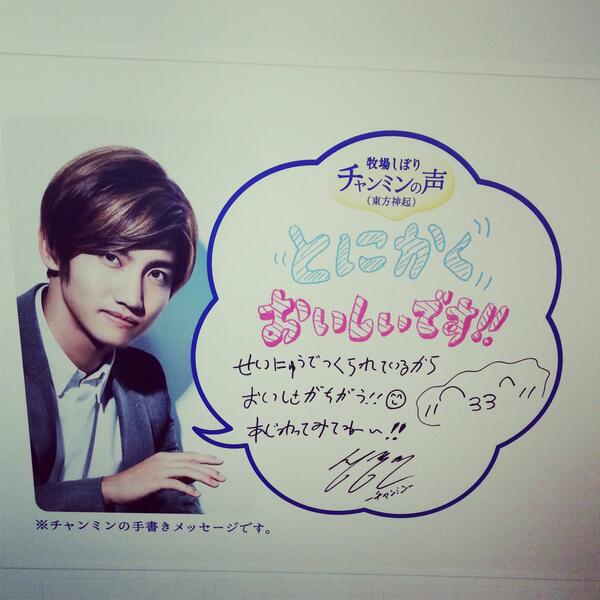 牧場しぼり
チャンミンの声
(東方神起)
とにかく
おいしいです!!
せいにゅうでつくられているから
おいしさがちがう!!
あじわってみてね〜!!
チャンミン
※チャンミンの手書きメッセージです。